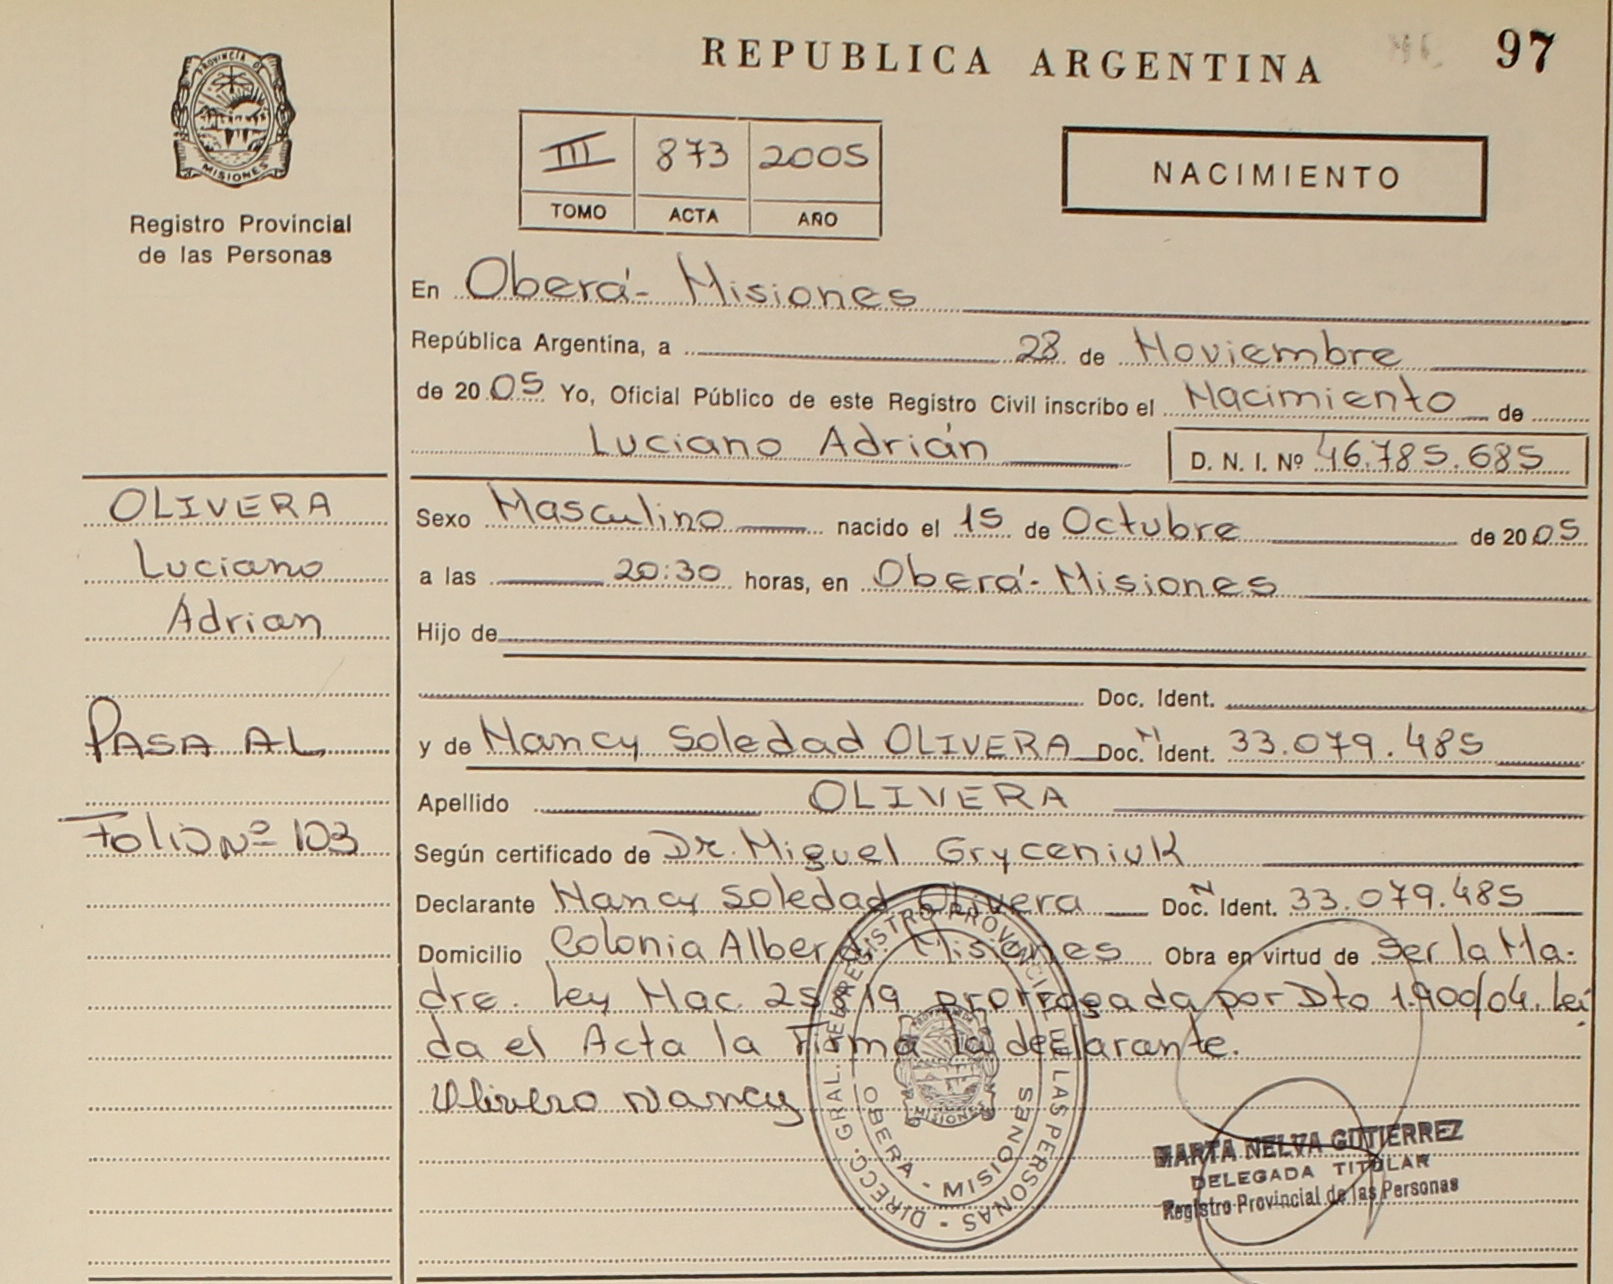 REPUBLICA ARGENTINA
97
PROVINCIA D
MISIONES
Registro Provincial
de las Personas
III 873 2005
TOMO ACTA AÑO
NACIMIENTO
En Oberá- Misiones
República Argentina, a 28 de Noviembre
de 2005 Yo, Oficial Público de este Registro Civil inscribo el Nacimiento de
Luciano Adrián D. N. I. Nº 46.785.685
OLIVERA
Luciano
Adrian
PASA AL
Folio Nº 103
Sexo Masculino nacido el 15 de Octubre de 2005
a las 20:30 horas, en Oberá- Misiones
Hijo de
Doc. Ident.
y de Nancy Soledad OLIVERA Doc. N Ident. 33.079.485
Apellido OLIVERA
Según certificado de Dr. Miguel Gryceniuk
Declarante Nancy Soledad Olivera Doc. N Ident. 33.079.485
Domicilio Colonia Alberdi Misiones Obra en virtud de ser la Ma-
dre. Ley Nac. 25 819 prorrogada por Dto 1.900/04. Leí
da el Acta la Firma la declarante.
Olivera Nancy
DIRECC. GRAL. DEL REGISTRO PROVINCIAL DE LAS PERSONAS -
OBERA - MISIONES
MISIONES
MARTA NELVA GUTIERREZ
DELEGADA TITULAR
Registro Provincial de las Personas